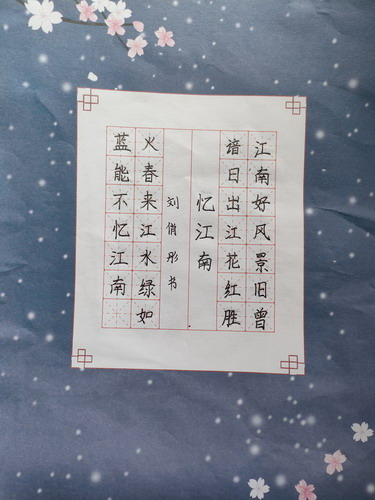 江南好风景旧曾
谙日出江花红胜
忆江南
刘俏彤书
火春来江水绿如
蓝能不忆江南